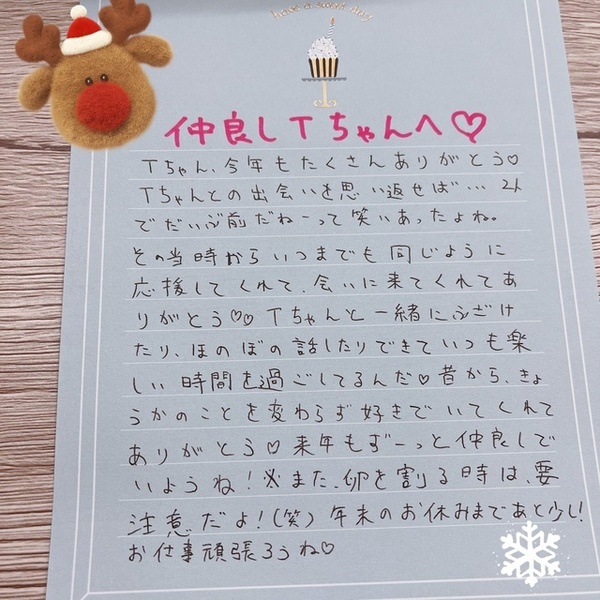 Have a sweet day!
仲良しTちゃんへ♡
Tちゃん、今年もたくさんありがとう♡
Tちゃんとの出会いを思い返せば…2人
でだいぶ前だねーって笑いあったよね。
その当時からいつまでも同じように
応援してくれて、会いに来てくれてあ
りがとう♡♡Tちゃんと一緒にふざけ
たり、ほのぼの話したりできていつも楽
しい時間を過ごしてるんだ♡昔から、きょ
うかのことを変わらず好きでいてくれて
ありがとう♡来年もずーっと仲良しで
いようね!※また、卵を割る時は、要
注意だよ!(笑)年末のお休みまであと少し!
お仕事頑張ろうね♡